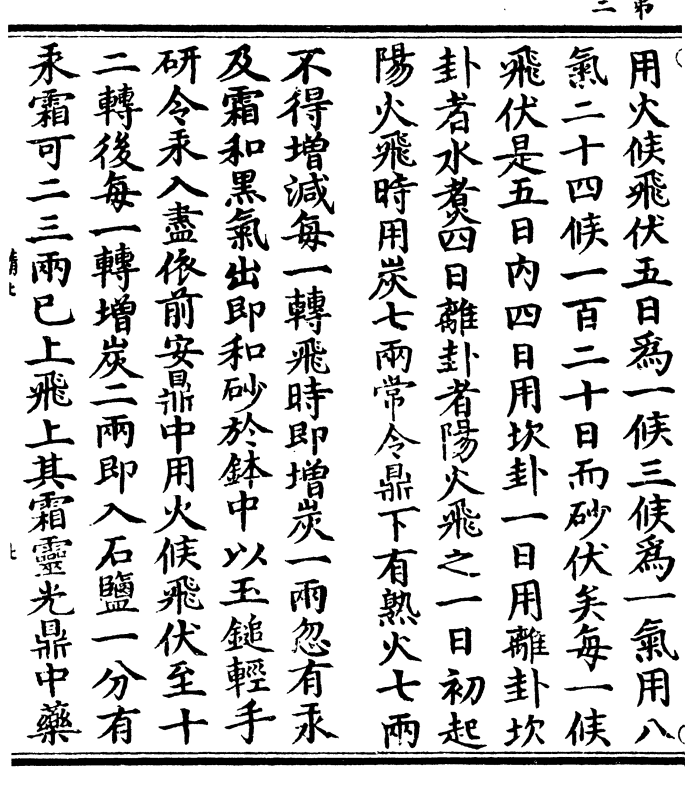 用火候飛伏五日爲一候三候爲一氣用八
氣二十四候一百二十日而砂伏矣每一候
飛伏是五日內四日用坎卦一日用離卦坎
卦者水煑四日離卦者陽火飛之一日初起
陽火飛時用炭七兩常令鼎下有熟火七兩
不得增減每一轉飛時即增炭一兩忽有汞
及霜和黑氣出即和砂於鉢中以玉鎚輕手
研令汞入盡依前安鼎中用火候飛伏至十
二轉後每一轉增炭二兩即入石鹽一分有
汞霜可二三兩巳上飛上其霜靈光鼎中藥